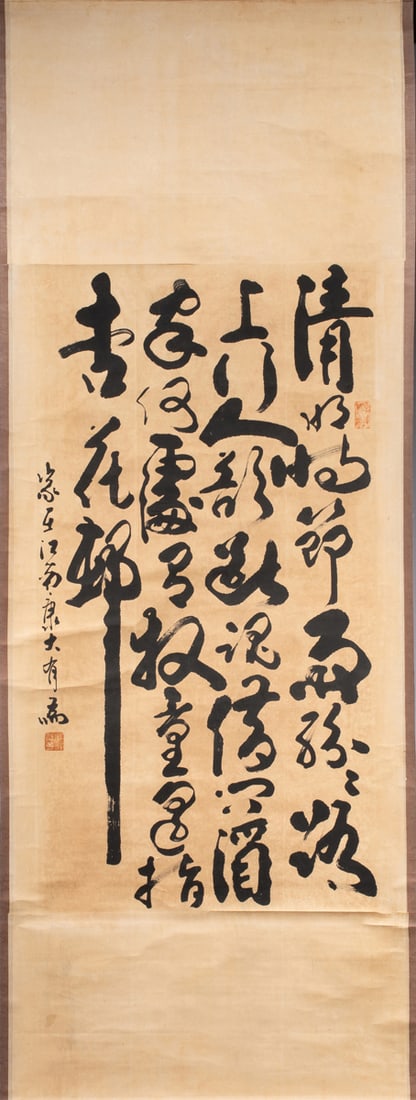 清明時節雨紛〻路
上行人欲斷魂借問酒
家何處有牧童遙指
杏花邨
家在江南康大有